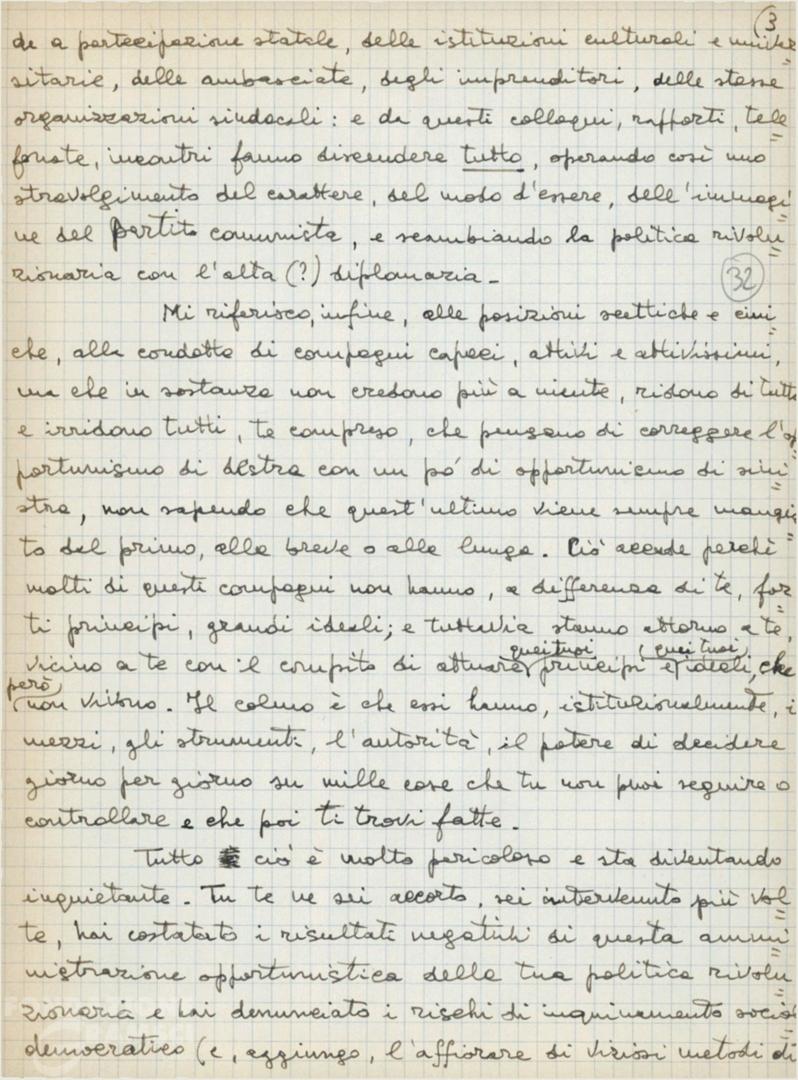 3
de a partecipazione statale, delle istituzioni culturali e univer=
sitarie, delle ambasciate, degli imprenditori, delle stesse
organizzazioni sindacali: e da questi colloqui, rapporti, tele
fonate, incontri fanno discendere tutto, operando così uno
stravolgimento del carattere, del modo d'essere, dell'immagi=
ne del Partito comunista, e scambiando la politica rivolu=
zionaria con l'alta (?) diplomazia_
32
Mi riferisco, infine, alle posizioni scettiche e cini=
che, alla condotta di compagni capaci, attivi e attivissimi,
ma che in sostanza non credono più a niente, ridono di tutto
e irridono tutti, te compreso, che pensano di correggere l'op=
portunismo di destra con un pó di opportunismo di sini=
stra, non sapendo che quest'ultimo viene sempre mangia=
to dal primo, alla breve o alla lunga. Ciò accade perchè
molti di questi compagni non hanno, a differenza di te, for=
ti principi, grandi ideali; e tuttavia stanno attorno a te,
vicino a te con il compito di attuare quei tuoi principi e quei tuoi ideali, che
però non vivono. Il colmo è che essi hanno, istituzionalmente, i
mezzi, gli strumenti, l'autorità, il potere di decidere
giorno per giorno su mille cose che tu non puoi seguire o
controllare e che poi ti trovi fatte.
Tutto ciò è molto pericoloso e sta diventando
inquietante. Tu te ne sei accorto, sei intervenuto più vol=
te, hai costatato i risultati negativi di questa ammi=
nistrazione opportunistica della tua politica rivolu=
zionaria e hai denunciato i rischi di inquinamento social
democratico (e, aggiungo, l'affiorare di viziosi metodi di